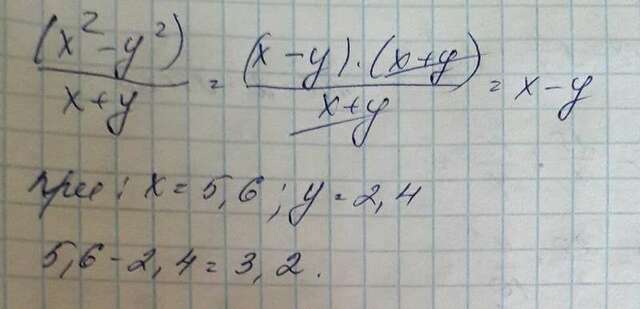 (x²-y²)/(x+y) = (x-y)·(x+y)/(x+y) = x-y
при: x=5,6; y=2,4
5,6-2,4=3,2.